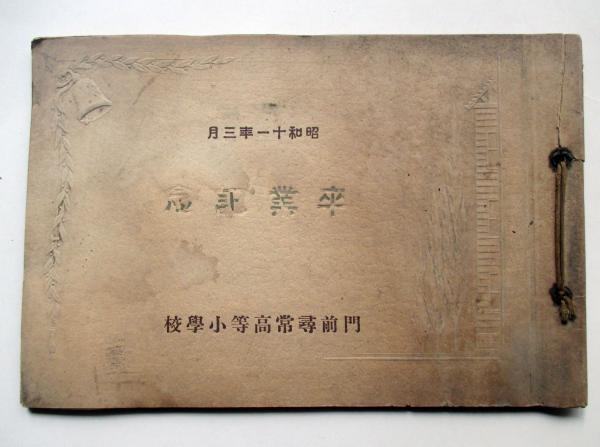 昭和十一年三月
卒業記念
門前尋常高等小學校